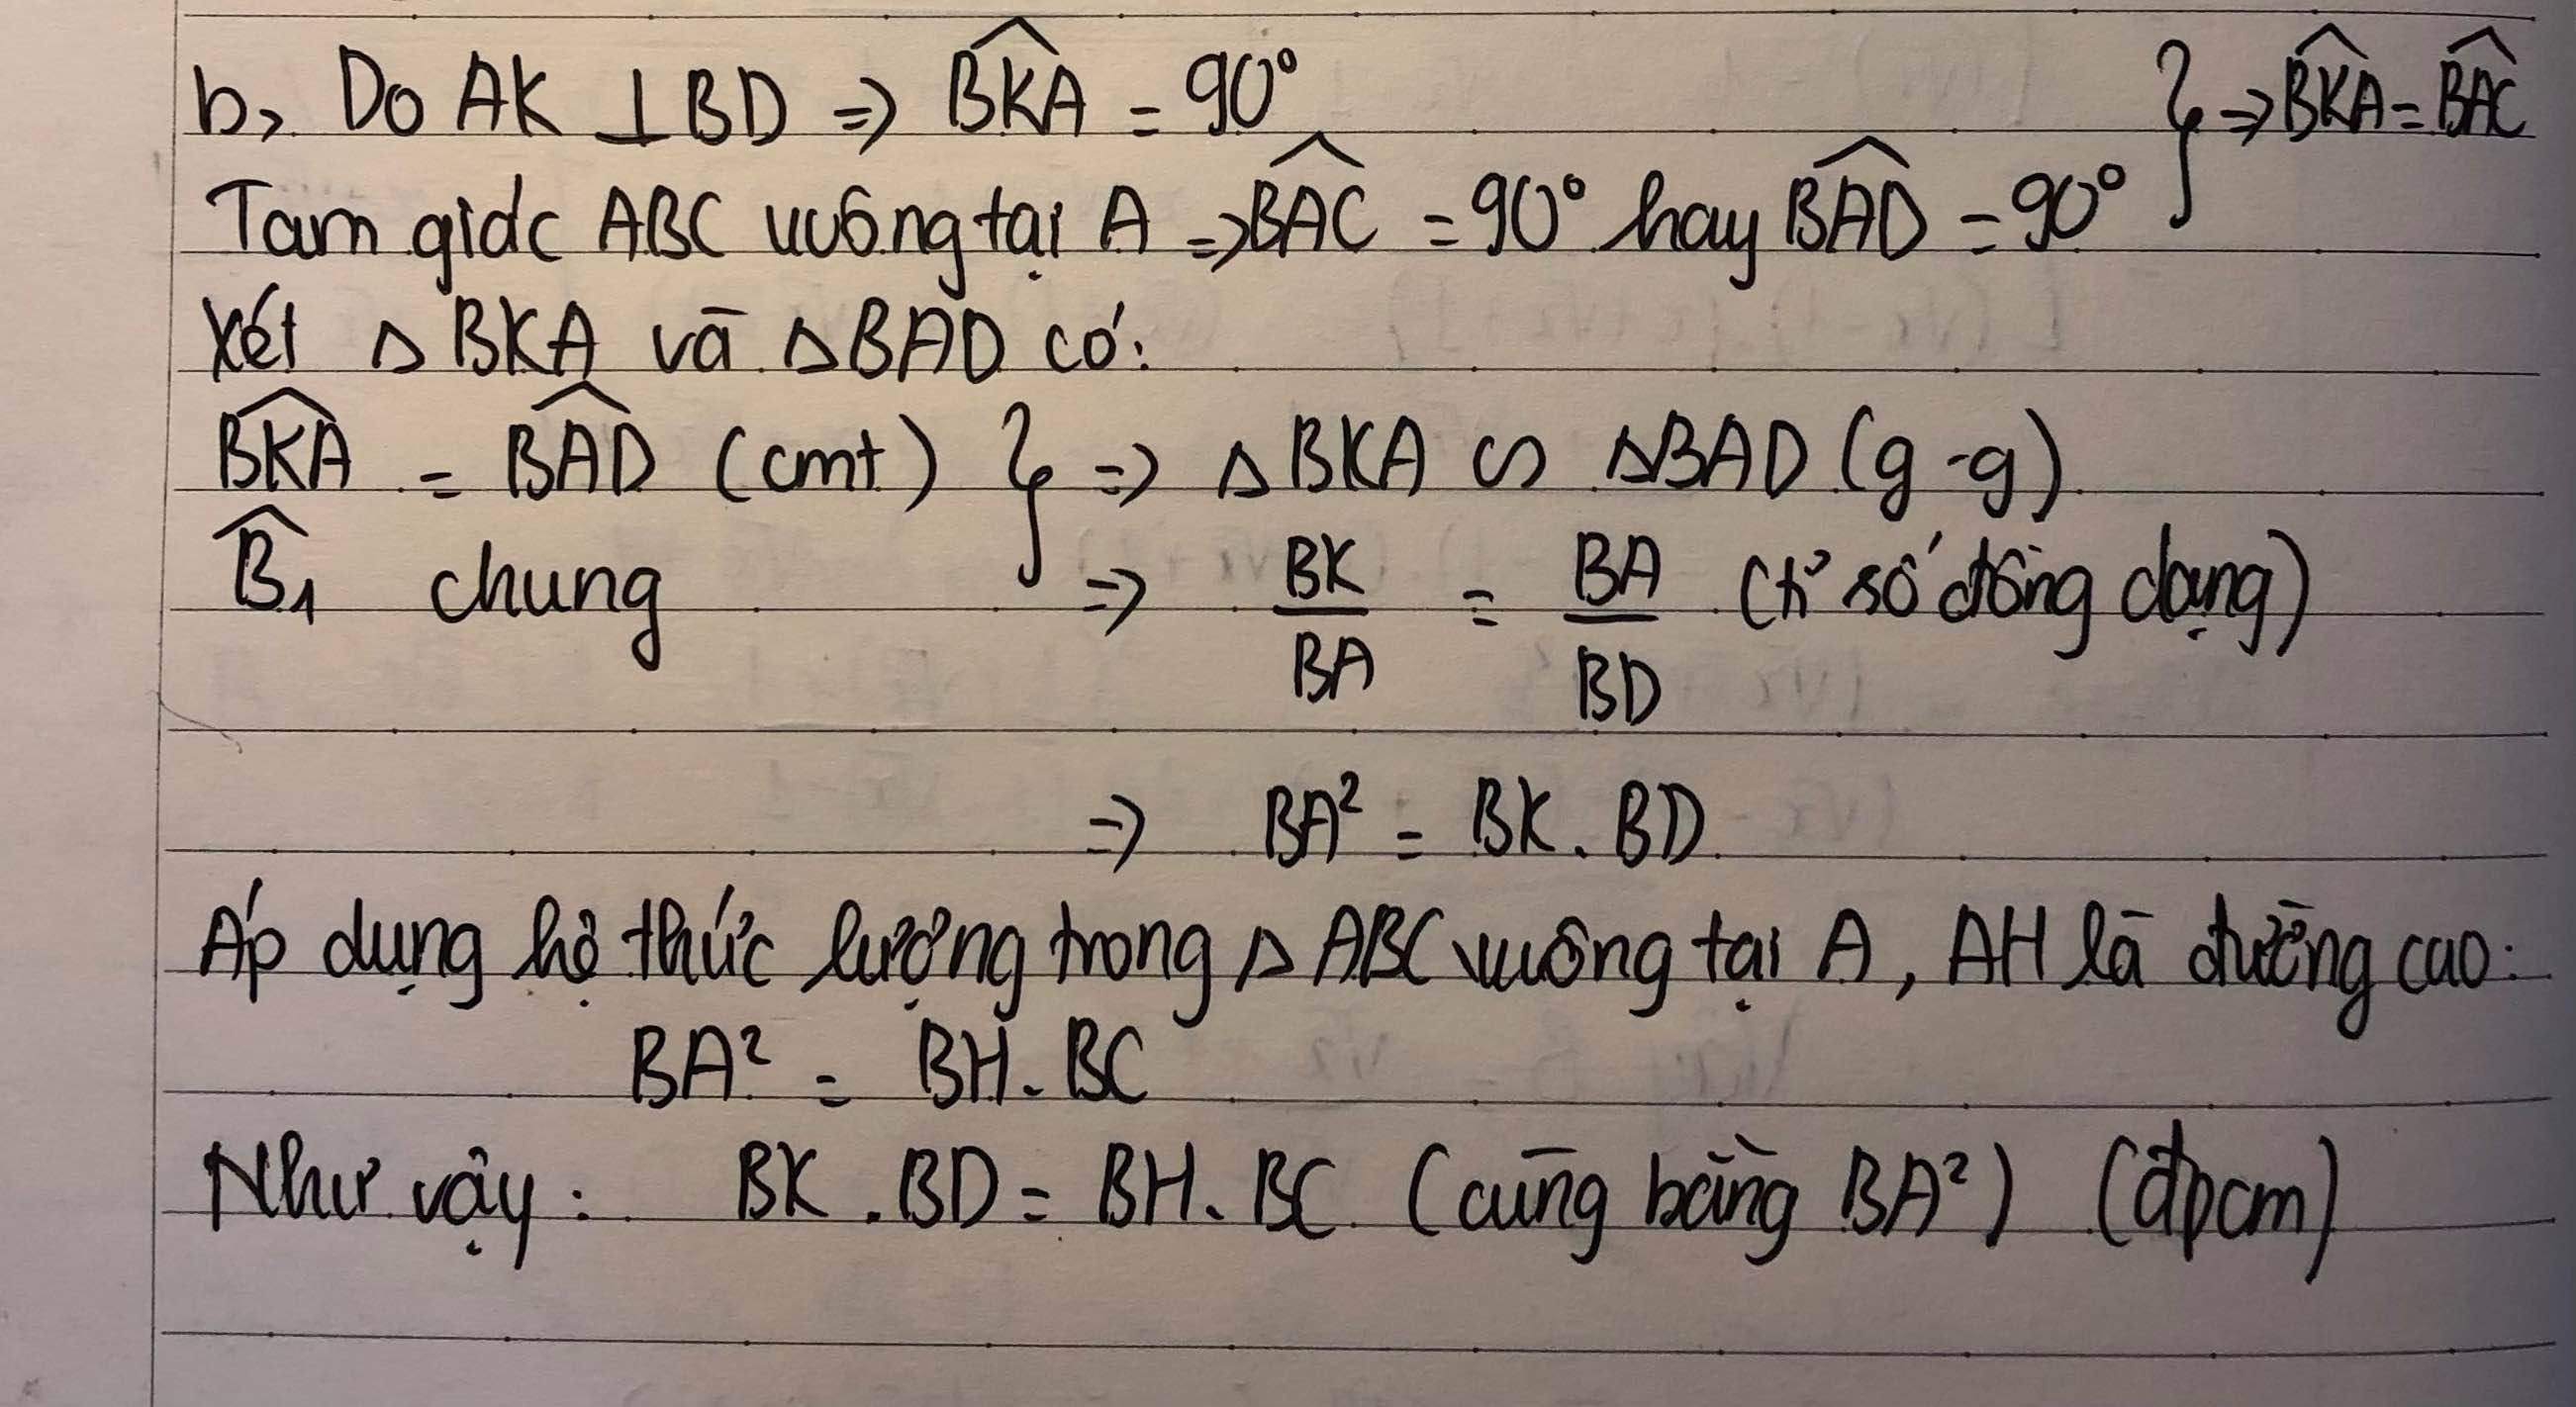 b, Do AK ⊥ BD => \widehat{BKA} = 90° } => \widehat{BKA} = \widehat{BAC}
Tam giác ABC vuông tại A => \widehat{BAC} = 90° hay \widehat{BAD} = 90°
Xét Δ BKA và Δ BAD có:
\widehat{BKA} = \widehat{BAD} (cmt) } => Δ BKA ∽ Δ BAD (g-g)
\widehat{B}_1 chung => BK/BA = BA/BD (tỉ số đồng dạng)
=> BA² = BK . BD
Áp dụng hệ thức lượng trong Δ ABC vuông tại A, AH là đường cao:
BA² = BH . BC
Như vậy: BK . BD = BH . BC (cùng bằng BA²) (đpcm)